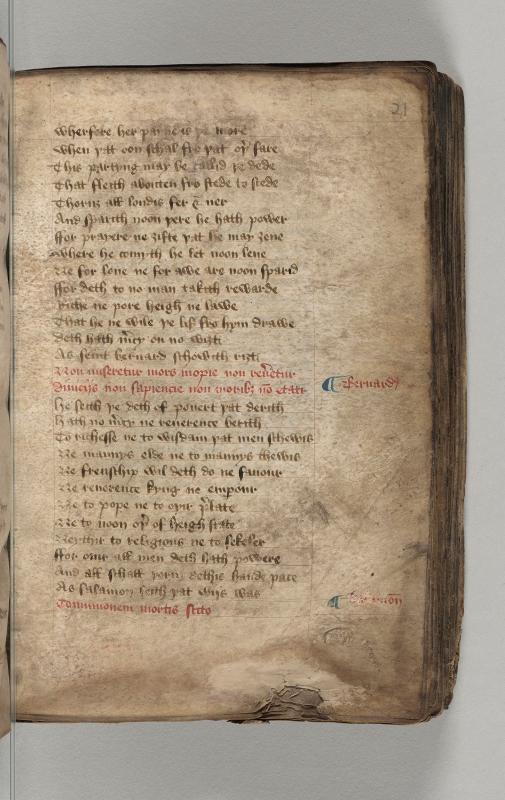 21
Wherfore her payne is þe more
When þat oon schal fro þat oþ͛ fare
This partyng may be callid þe dede
That fleith abouten fro stede to stede
Thoruȝ all londis fer & ner
And sparith noon þere he hath power
ffor prayere ne ȝifte þat he may ȝeue
Where he comyth he let noon leue
Ne for loue ne for awe are noon sparid
ffor deth to no man takith rewarde
Riche ne pore heigh ne lawe
That he ne wile þe lif fro hym drawe
deth hath m͛cy on no wiȝt
As seint bernard schowith riȝt
Non miseretur mors inopie non reu͛etur
diuicijs non sapiencie non morib; nō etati
Bernard͛
he seith þe deth of pouert þat derith
hath no m͛cy ne reuerence berith
To richesse ne to wisdam þat men schewis
Ne mannys elde ne to mannys thewis
Ne frenschip wil deth do ne fauour
Ne reuerence kyng ne empour
Ne to pope ne to oþir p͛late
Ne to noon oþ͛ of heigh state
Neythir to religious ne to sekeler
ffor ouir all men deth hath powere
And all schall þoruȝ dethis hande pace
As salamon seith þat wijs was
Communionem mortis scito